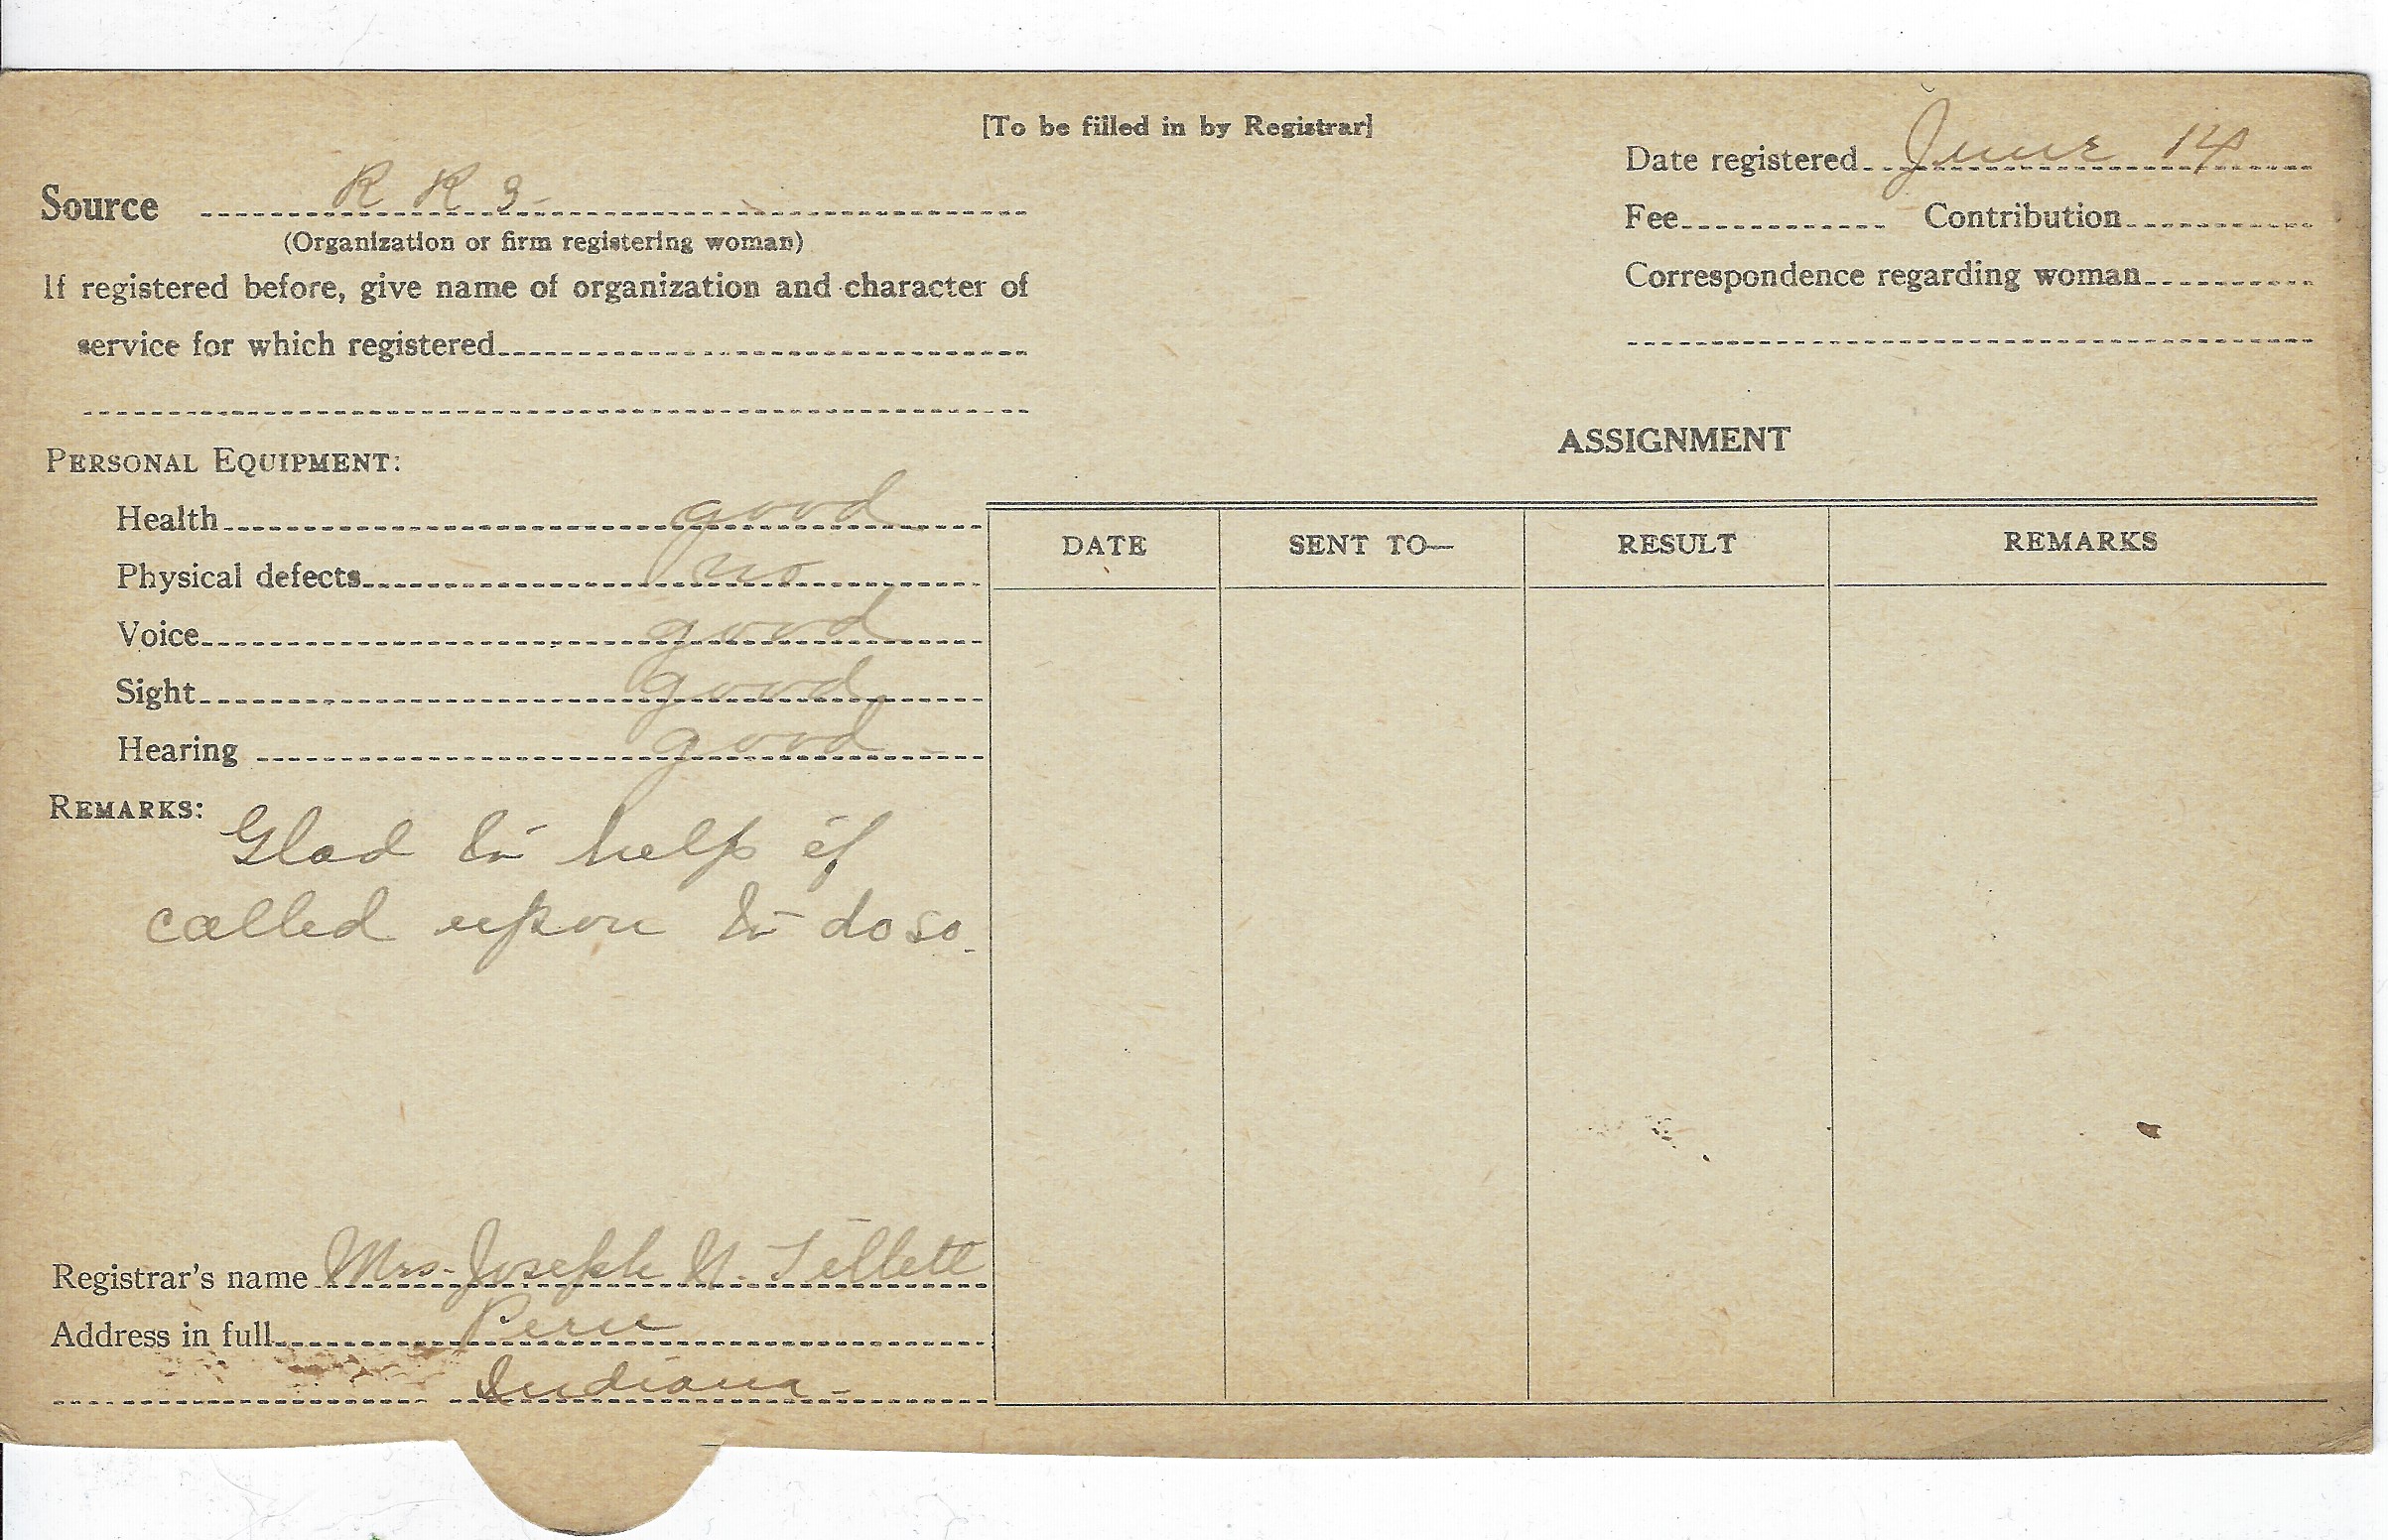 [To be filled in by Registrar]
Date registered June 14
Source R R 3-
(Organization or firm registering woman)
Fee Contribution
If registered before, give name of organization and character of
service for which registered
Correspondence regarding woman
PERSONAL EQUIPMENT:
Health good
Physical defects no
Voice good
Sight good
Hearing good -
REMARKS:
Glad to help if
called upon to do so.
Registrar's name Mrs. Joseph N. Tillett
Address in full Peru
Indiana -
ASSIGNMENT
DATE SENT TO— RESULT REMARKS